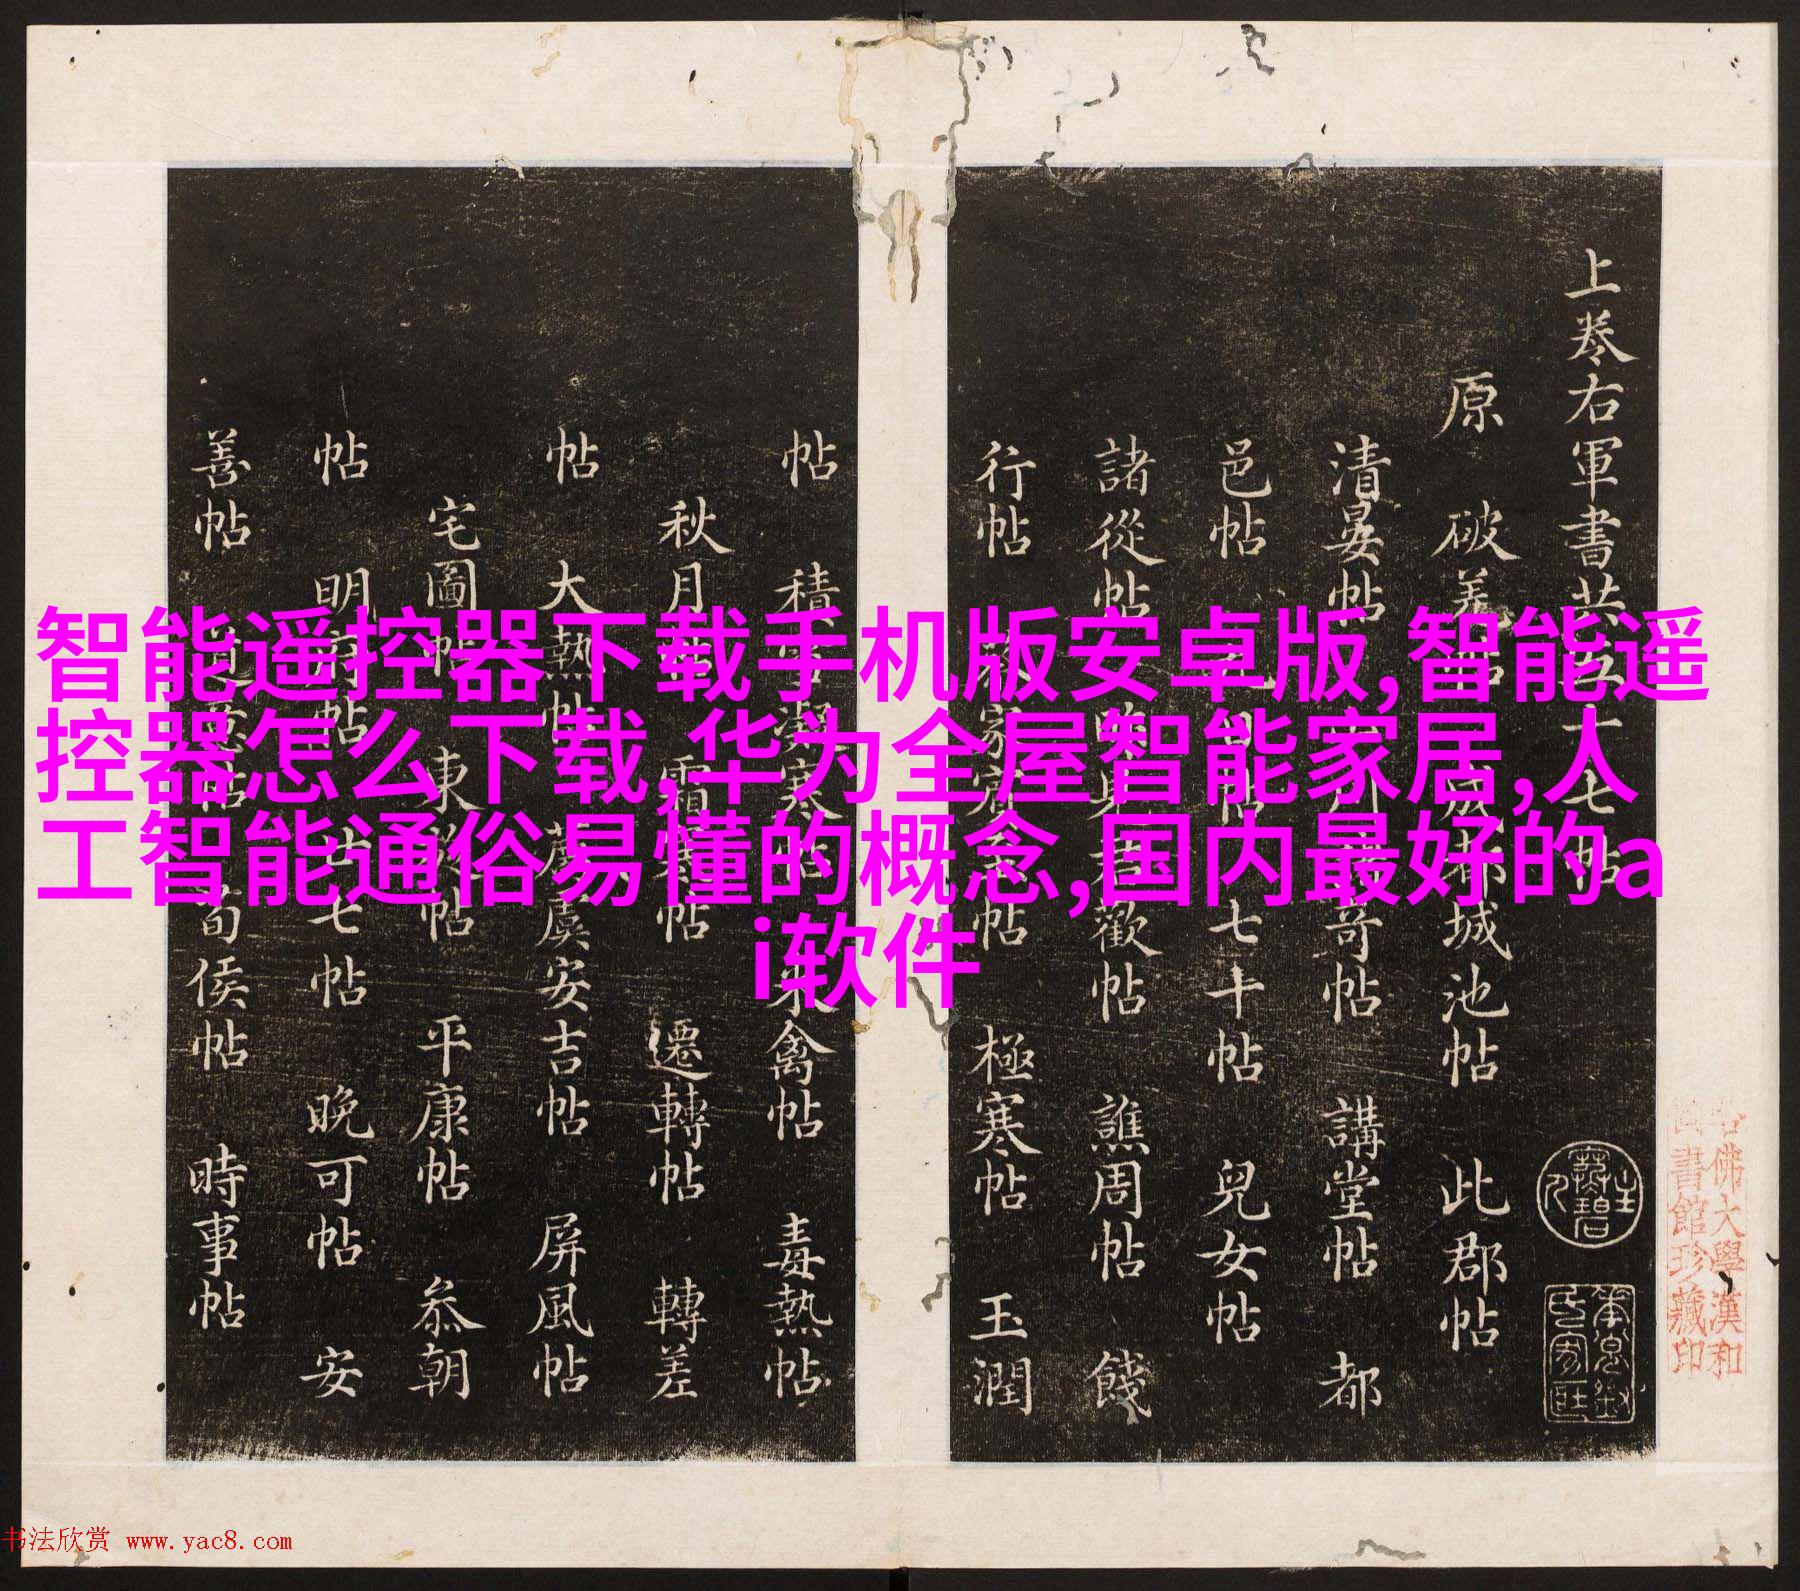 智能遥控器下载手机版安卓版,智能遥
控器怎么下载,华为全屋智能家居,人
工智能通俗易懂的概念,国内最好的a
i软件
上卷右軍書共五十七帖
原 破羌帖 成都城池帖 此郡帖
清晏帖 講堂帖 都
邑帖 七十帖 兒女帖
諸從帖 歡帖 譙周帖 餞
行帖 帖 極寒帖 玉潤
帖 積雪凝寒帖 來禽帖 毒熱帖
秋月帖 霜寒帖 遷轉帖 轉差
帖 大熱帖 虞安吉帖 屏風帖
宅圖帖 東 帖 平康帖 叅朝
帖 明 帖 七帖 晚可帖 安
善帖 荀侯帖 時事帖
佛大學漢和
書館珍藏印
书法欣赏 www.yac8.com